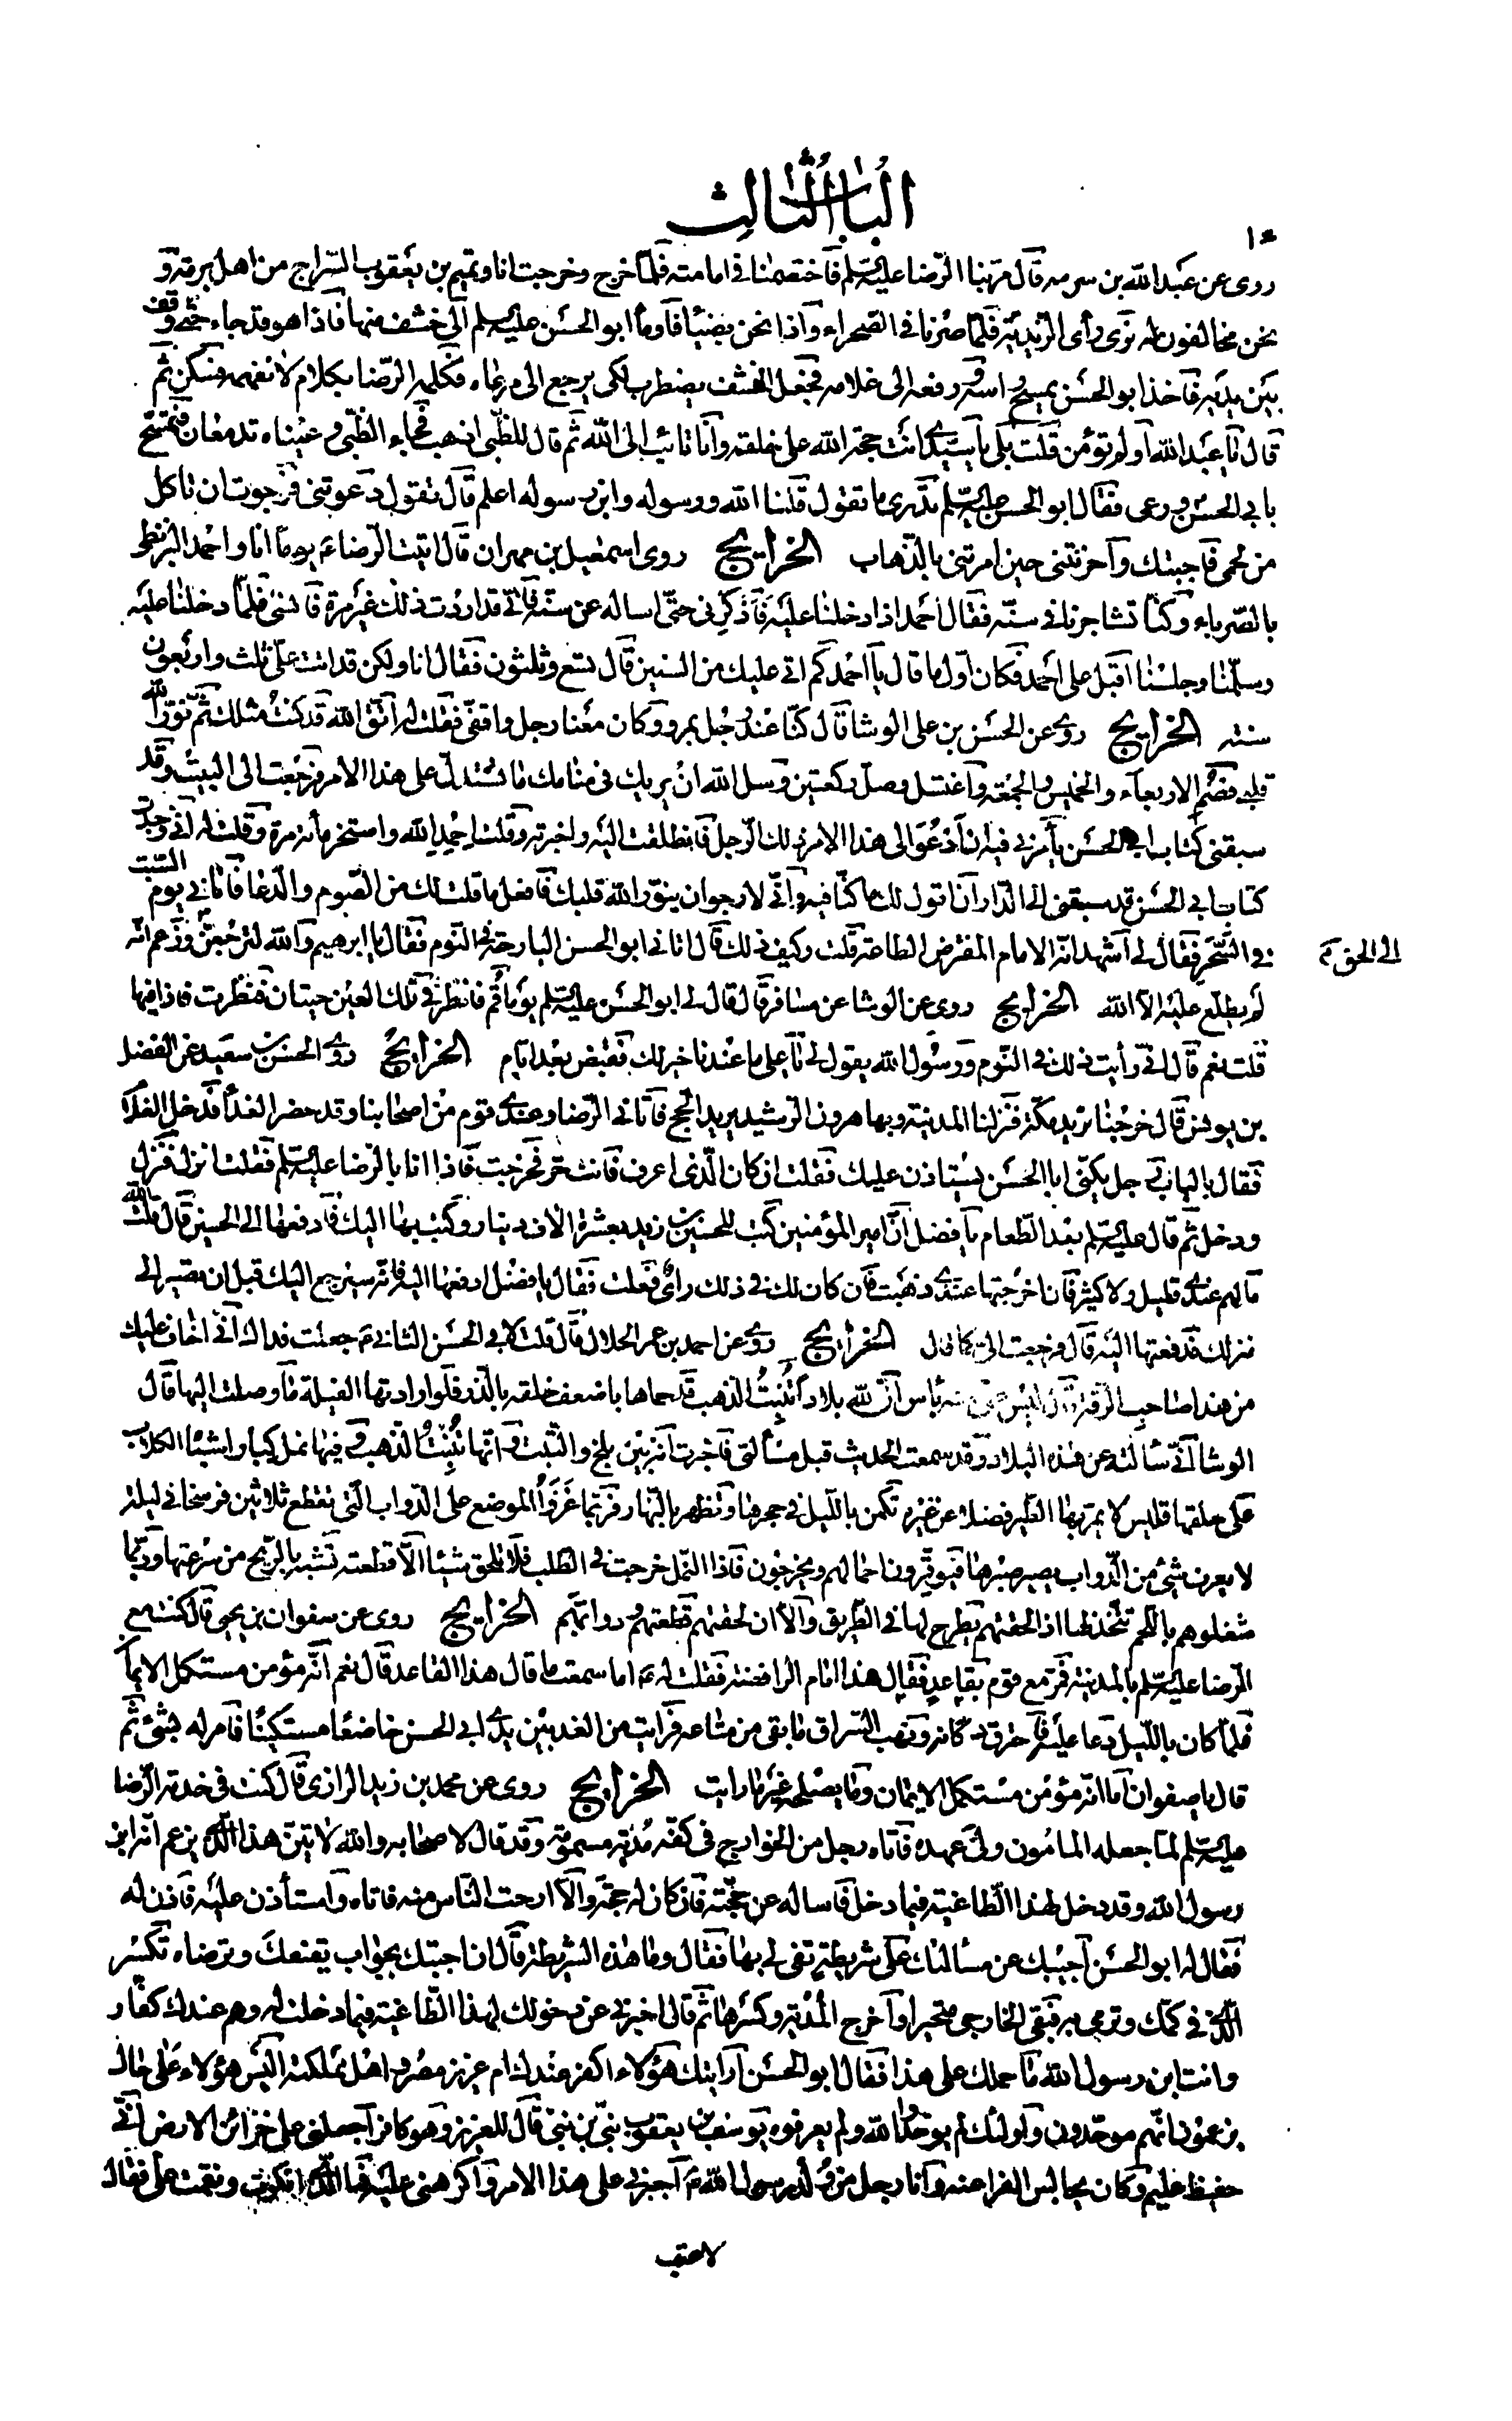 الباب الثالث
١٠
روى عن عبد الله بن سرمه قال مرّ بنا الرّضا عليه السلم فاختصمنا في امامته فلمّا خرج وخرجت انا وتميم بن يعقوب السّراج من اهل برقه و
نحن مخالفون له نرى رأى الزيديّة فلمّا صرنا في الصّحراء واذا نحن بضبا فاومأ ابو الحسن عليه السلم الى خشف منها فاذا هو قد جاء حتى وقف
بين يديه فاخذ ابو الحسن يمسح راسه ورفعه الى غلامه فجعل الخشف يضطرب لكي يرجع الى مرعاه فكلمه الرّضا بكلام لا نفهمه فسكن ثم
قال يا عبد الله اولم تؤمن قلت بلى يا سيدي انت حجة الله على خلقه وانا تائب الى الله ثم قال للظبي اذهب فجاء الظّبي وعيناه تدمعان فتمسّح
بابي الحسن ورعى فقال ابو الحسن عليه السلم تدري ما تقول قلنا الله ورسوله وابن رسوله اعلم قال تقول دعوتني فرجوت ان تاكل
من لحمي فاجبتك واحزنتني حين امرتني بالذّهاب الخرايج روى اسمعيل بن مهران قال اتيت الرّضاء ع يوما انا واحمد البزنطي
بالصّرياء وكنّا تشاجرنا في سنّه فقال احمد اذا دخلنا عليه فاذكرني حتّى اساله عن سنّه فانّي قد اردت ذلك غير مرة فانسى فلمّا دخلنا عليه
وسلّمنا وجلسنا اقبل على احمد فكان اوّل ما قال يا احمد كم اتى عليك من السنين قال تسع وثلثون فقال انا ولكن قد اتت علىّ ثلث واربعون
سنته الخرايج روى عن الحسن بن على الوشا قال كنّا عند رجل بمرو وكان معنا رجل واقفيّ فقلت له اتّق الله قد كنتُ مثلك ثم نوّر الله
قلبي فصم الاربعاء والخميس والجمعة واغتسل وصلّ ركعتين وسل الله ان يريك في منامك ما تستدلّ على هذا الامر فرجعت الى البيت وقد
سبقني كتاب ابي الحسن يأمرني فيه ان ادعو الى هذا الامر ذلك الرّجل فانطلقت اليه واخبرته وقلت احمد الله واستخر مأته مرة وقلت له انّي وجدت
كتاب ابي الحسن قد سبقني الى الدّار ان اقول لك ما كنّا فيه وانّي لارجو ان ينوّر الله قلبك فافعل ما قلت لك من الصّوم والدّعا فاتاني يوم السّبت
في السّحر فقال لي اشهد انّه الامام المفترض الطاعة قلت وكيف ذلك قال اتاني ابو الحسن البارحة في النّوم فقال يا ابرهيم والله لترجعنّ وزعم انّه
الى الحق
لم يطلع عليه الا الله الخرايج روى عن الوشا عن مسافر قال قال لي ابو الحسن عليه السلم يوما قم فانظر في تلك العين حيتان فنظرت فاذا فيها
قلت نعم قال انّي رأيت ذلك في النّوم ورسول الله يقول لي يا على ما عندنا خير لك فقبض بعد ايام الخرايج روى الحسن بن سعيد عن الفضل
بن يونس قال خرجنا نريد مكّة فنزلنا المدينة وبها هرون الرّشيد يريد الحج فاتاني الرّضا وعندي قوم من اصحابنا وقد حضر الغدأ فدخل الغلام
فقال بالباب رجل يكنّى ابا الحسن يستاذن عليك فقلت ان كان الّذي اعرف فانت حرّ فخرجت فاذا انا بالرّضا عليه السلم فقلت انزل فنزل
ودخل ثم قال عليه السلم بعد الطّعام يا فضل انّ امير المؤمنين كتب للحسين بن زيد بعشرة الاف دينار وكتب بها اليك فادفعها الى الحسين قال قلت والله
ما لهم عندي قليل ولا كثير فان اخرجتها عندي ذهبت فان كان لك في ذلك رأى فعلت فقال يا فضل ادفعها اليه فانّه سيرجع اليك قبل ان تصير الى
منزلك فدفعتها اليه قال فرجعت الىّ كما قال الخرايج روى عن احمد بن عمر الحلال قال قلت لابي الحسن الثاني ع جعلت فداك انّي اخاف عليك
من هذا صاحب الرّقة قال ليس علىّ منه باس انّ لله بلادا تُنبتُ الذهب قد حماها باضعف خلقه بالذّر فلو ارادتها الفيلة ما وصلت اليها قال
الوشا انّي سألته عن هذه البلاد وقد سمعت الحديث قبل مسألتي فاخبرت انه بين بلخ والتّبت وانّها تُنبت الذهب وفيها نمل كبار اشباه الكلاب
على خلقها فليس لا يمرّ بها الطّير فضلا عن غيره تكمن بالليل في جحرها وتظهر بالنّهار فربّما غزوا الموضع على الدّواب الّتي تقطع ثلاثين فرسخا في ليلة
لا يعرف شيء من الدّواب يصبر صبرها فيوقرون احمالهم ويخرجون فاذا النّمل خرجت في الطلب فلا تلحق شيئا الّا قطعته تشبه بالرّيح من سرعتها وربّما
شغلوهم باللّحم تتّخذ لها اذا لحقتهم يطرح لها في الطّريق والّا ان لحقتهم قطعتهم ودوابّهم الخرايج روى عن صفوان بن يحيى قال كنت مع
الرّضا عليه السلم بالمدينة فمرّ مع قوم بقاعد فقال هذا امام الرافضة فقلت له ع اما سمعت ما قال هذا القاعد قال نعم انّه مؤمن مستكمل الايمان
فلمّا كان بالليل دعا عليه فاحترق دكانه ونهب السّراق ما بقى من متاعه فرايت من الغد بين يدي ابي الحسن خاضعًا مستكينًا فامر له بشئ ثم
قال يا صفوان اما انّه مؤمن مستكمل الايمان وما يصلحه غير ما رايت الخرايج روى عن محمد بن زيد الرازي قال كنت في خدمة الرّضا
عليه السلم لمّا جعله المامون ولىّ عهده فاتاه رجل من الخوارج في كفّه مُدية مسمومة وقد قال لاصحابه والله لاتينّ هذا الّذي يزعم انّه ابن
رسول الله وقد دخل لهذا الطّاغية فيما دخل فاساله عن حجّته فان كان له حجّة والّا ارحت النّاس منه فاتاه واستأذن عليه فاذن له
فقال له ابو الحسن اجيبك عن مسألتك على شريطة تفى لي بها فقال وما هذه الشريطة قال ان اجبتك بجواب يقنعك وترضاه تكسر
الّذي في كمّك وترمى به فبقى الخارجي متحيرا واخرج المُدية وكسرها ثم قال اخبرني عن دخولك لهذا الطّاغية فيما دخلت له وهم عندك كفّار
وانت ابن رسول الله ما حملك على هذا فقال ابو الحسن ارايتك هؤلاء اكفر عندك ام عزيز مصر واهل مملكته اليس هؤلاء على حال
يزعمون انّهم موحّدون واولئك لم يوحّدوا الله ولم يعرفوه يوسف بن يعقوب نبيّ بن نبيّ قال للعزيز وهو كافر اجعلني على خزائن الارض انّي
حفيظ عليم وكان يجالس الفراعنة وانا رجل من ولد رسول الله ع اجبرني على هذا الامر واكرهني عليه فما الّذي انكرت ونقمت علىّ فقال
لا عتب